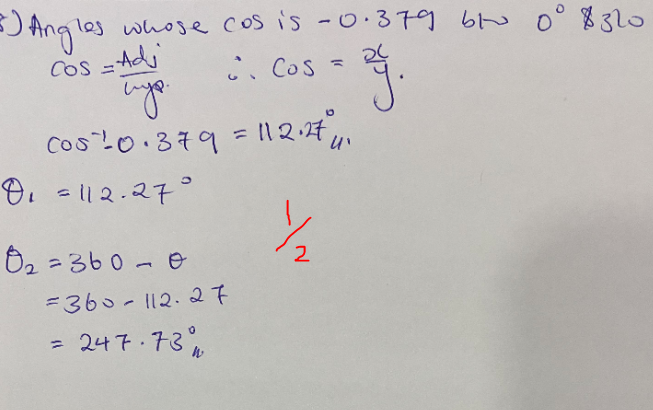 8) Angles whose cos is -0.379 btw 0° & 320
cos = Adj/hyp. ∴ cos = x/y.
cos⁻¹ -0.379 = 112.27°
θ₁ = 112.27°
1/2
θ₂ = 360 - θ
= 360 - 112.27
= 247.73°